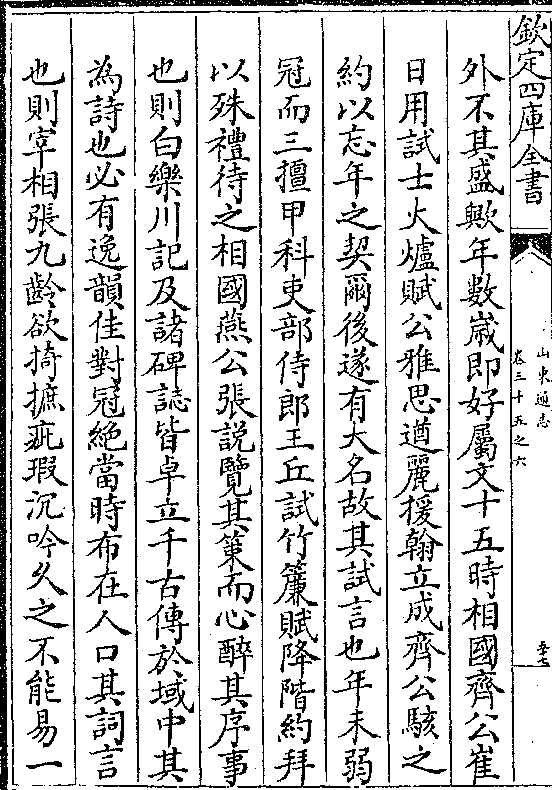 欽定四庫全書
山東通志
卷三十五之六
外不其盛歟年數嵗即好屬文十五時相國齊公崔
日用試士火爐賦公雅思遒麗援翰立成齊公駭之
約以忘年之契爾後遂有大名故其試言也年未弱
冠而三擅甲科吏部侍郎王丘試竹簾賦降階約拜
以殊禮待之相國燕公張說覽其策而心醉其序事
也則白樂川記及諸碑誌皆卓立千古傳於域中其
為詩也必有逸韻佳對冠絶當時布在人口其詞言
也則宰相張九齡欲掎摭疵瑕沉吟久之不能易一